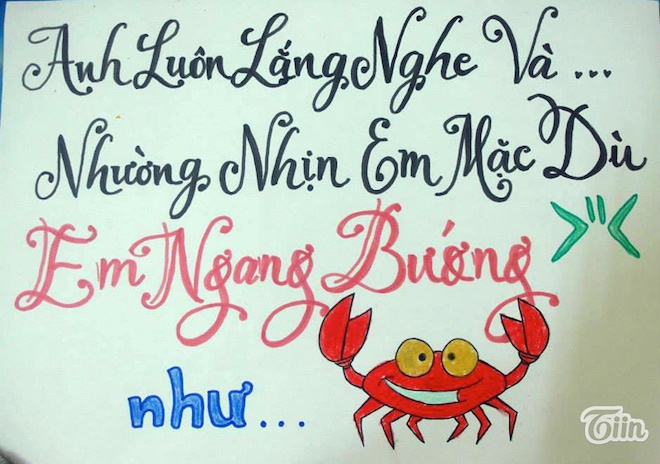 Anh Luôn Lắng Nghe Và ...
Nhường Nhịn Em Mặc Dù
Em Ngang Bướng >"<
như...
Tiin